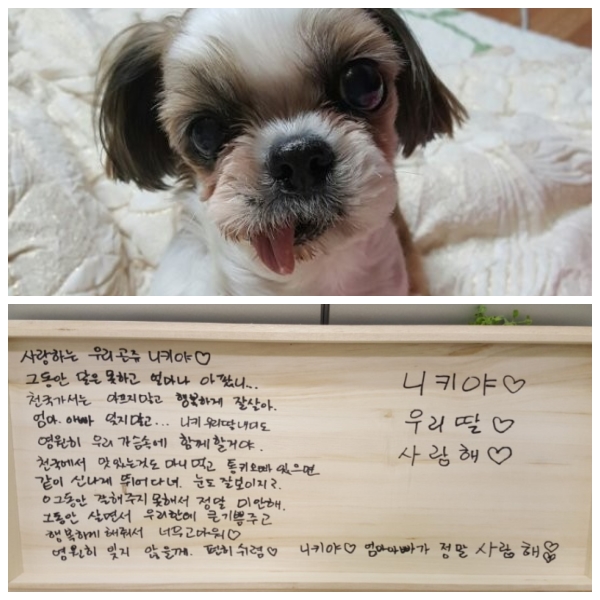 사랑하는 우리공쥬 니키야♡
그동안 말은못하고 얼마나 아팠니...
천국가서는 아프지말고 행복하게 잘살아.
엄마. 아빠 잊지말고... 니키 우리딸
영원히 우리 가슴속에 함께 할거야.
천국에서 맛있는것도 마니먹고 통키오빠 있으면
같이 신나게 뛰어다녀. 눈도 잘보이지?
그동안 잘해주지못해서 정말 미안해.
그동안 살면서 우리한테 큰기쁨주고
행복하게 해줘서 너무고마워♡
영원히 잊지 않을께. 편히쉬렴♡
니키야♡ 엄마아빠가 정말 사랑해
니키야♡
우리딸♡
사랑해♡